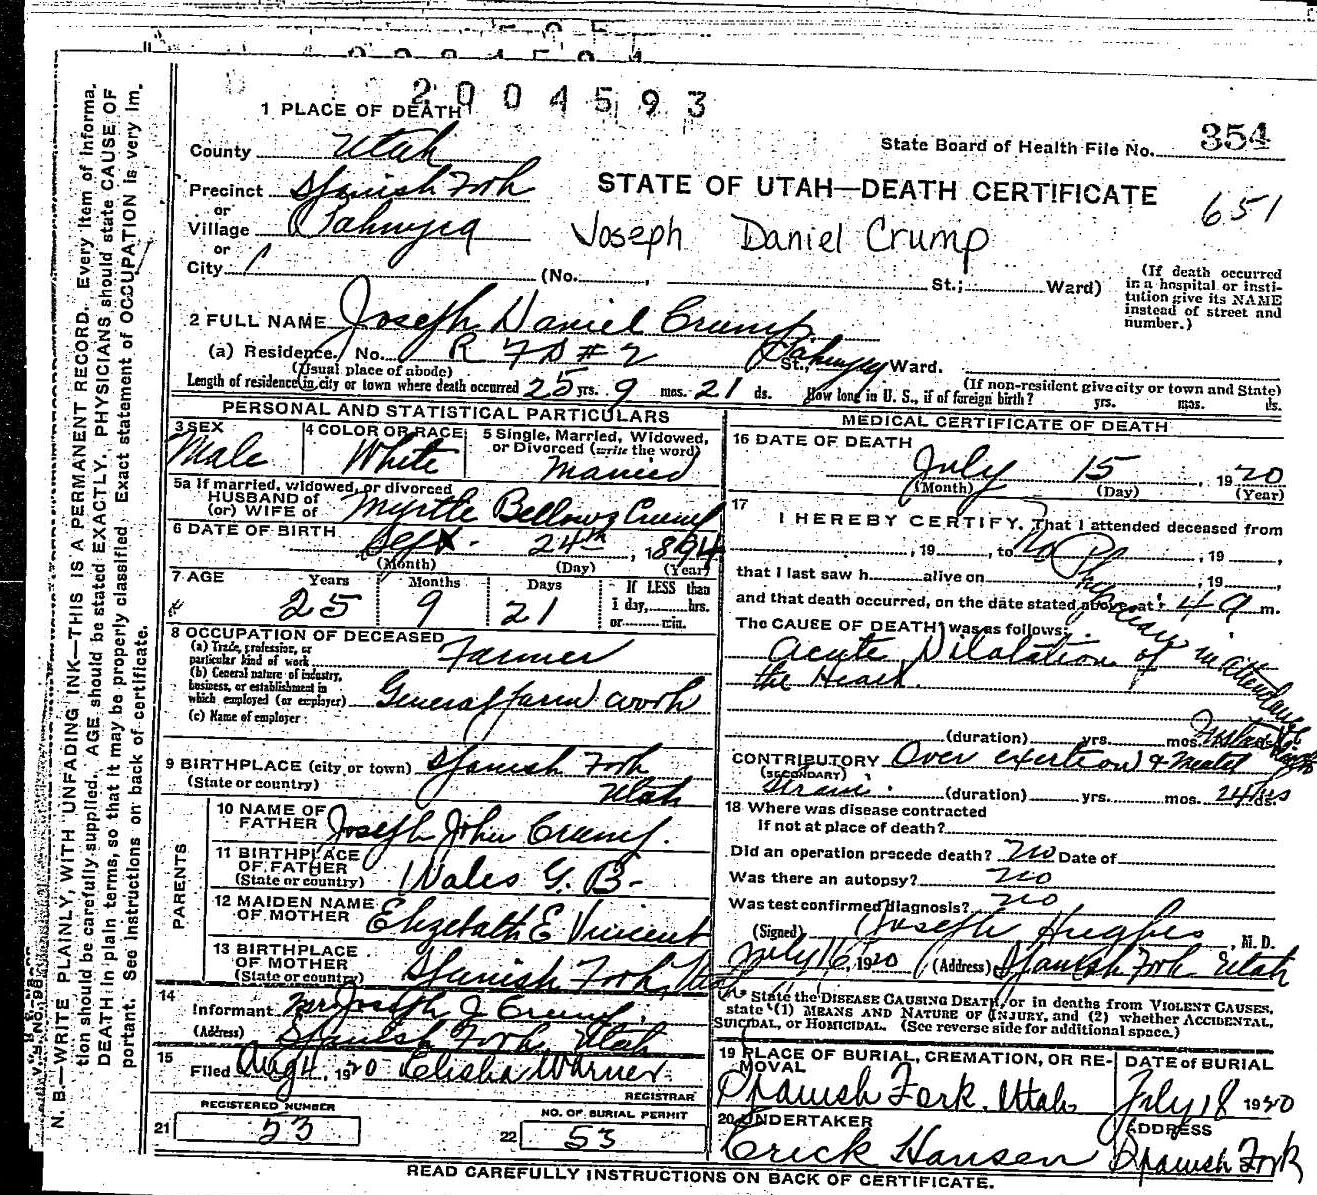 2004593
1 PLACE OF DEATH
County Utah
State Board of Health File No. 354
Precinct Spanish Fork
STATE OF UTAH—DEATH CERTIFICATE
651
or
Village Palmyra
Joseph Daniel Crump
or
City (No. , St.; Ward)
(If death occurred in a hospital or institution give its NAME instead of street and number.)
2 FULL NAME Joseph Daniel Crump
(a) Residence. No. R F D # 2 St., Palmyra Ward.
(Usual place of abode)
(If non-resident give city or town and State)
Length of residence in city or town where death occurred 25 yrs. 9 mos. 21 ds. How long in U. S., if of foreign birth? yrs. mos. ds.
PERSONAL AND STATISTICAL PARTICULARS
3 SEX Male
4 COLOR OR RACE White
5 Single, Married, Widowed, or Divorced (write the word) Married
5a If married, widowed, or divorced
HUSBAND of
(or) WIFE of Myrtle Bellows Crump
6 DATE OF BIRTH Sept. 24th, 1894
(Month) (Day) (Year)
7 AGE Years Months Days If LESS than
25 9 21 1 day, hrs.
or min.
8 OCCUPATION OF DECEASED
(a) Trade, profession, or particular kind of work Farmer
(b) General nature of industry, business, or establishment in which employed (or employer) General farm work
(c) Name of employer
9 BIRTHPLACE (city or town) Spanish Fork
(State or country) Utah
PARENTS
10 NAME OF FATHER Joseph John Crump.
11 BIRTHPLACE OF FATHER (State or country) Wales G. B-
12 MAIDEN NAME OF MOTHER Elizebath E Vincent
13 BIRTHPLACE OF MOTHER (State or country) Spanish Fork,
14
Informant Mr Joseph J Crump,
(Address) Spanish Fork, Utah
15
Filed Aug 4, 1920 Elisha Warner
REGISTRAR
REGISTERED NUMBER
21 53
NO. OF BURIAL PERMIT
22 53
MEDICAL CERTIFICATE OF DEATH
16 DATE OF DEATH
July 15, 1920
(Month) (Day) (Year)
17
I HEREBY CERTIFY, That I attended deceased from
, 19 , to No Physician in attendance , 19 ,
that I last saw h alive on , 19 ,
and that death occurred, on the date stated above, at 4 9 m.
The CAUSE OF DEATH was as follows:
Acute Dilatation of
the Heart.
(duration) yrs. mos.
CONTRIBUTORY Over exertion &
(SECONDARY)
Strain. (duration) yrs. mos. 24 hrs ds.
18 Where was disease contracted
If not at place of death?
Did an operation precede death? no Date of
Was there an autopsy? no
Was test confirmed diagnosis? no
(Signed) Joseph Hughes, M. D.
July 16, 1920 (Address) Spanish Fork Utah
State the DISEASE CAUSING DEATH, or in deaths from VIOLENT CAUSES,
state (1) MEANS AND NATURE OF INJURY, and (2) whether ACCIDENTAL,
SUICIDAL, OR HOMICIDAL. (See reverse side for additional space.)
19 PLACE OF BURIAL, CREMATION, OR REMOVAL
Spanish Fork. Utah
DATE of BURIAL
July 18 1920
20 UNDERTAKER
Erick Hansen
ADDRESS
Spanish Fork
READ CAREFULLY INSTRUCTIONS ON BACK OF CERTIFICATE.
N. B.—WRITE PLAINLY, WITH UNFADING INK—THIS IS A PERMANENT RECORD. Every item of informa-
tion should be carefully supplied. AGE should be stated EXACTLY. PHYSICIANS should state CAUSE OF
DEATH in plain terms, so that it may be properly classified. Exact statement of OCCUPATION is very im-
portant. See instructions on back of certificate.